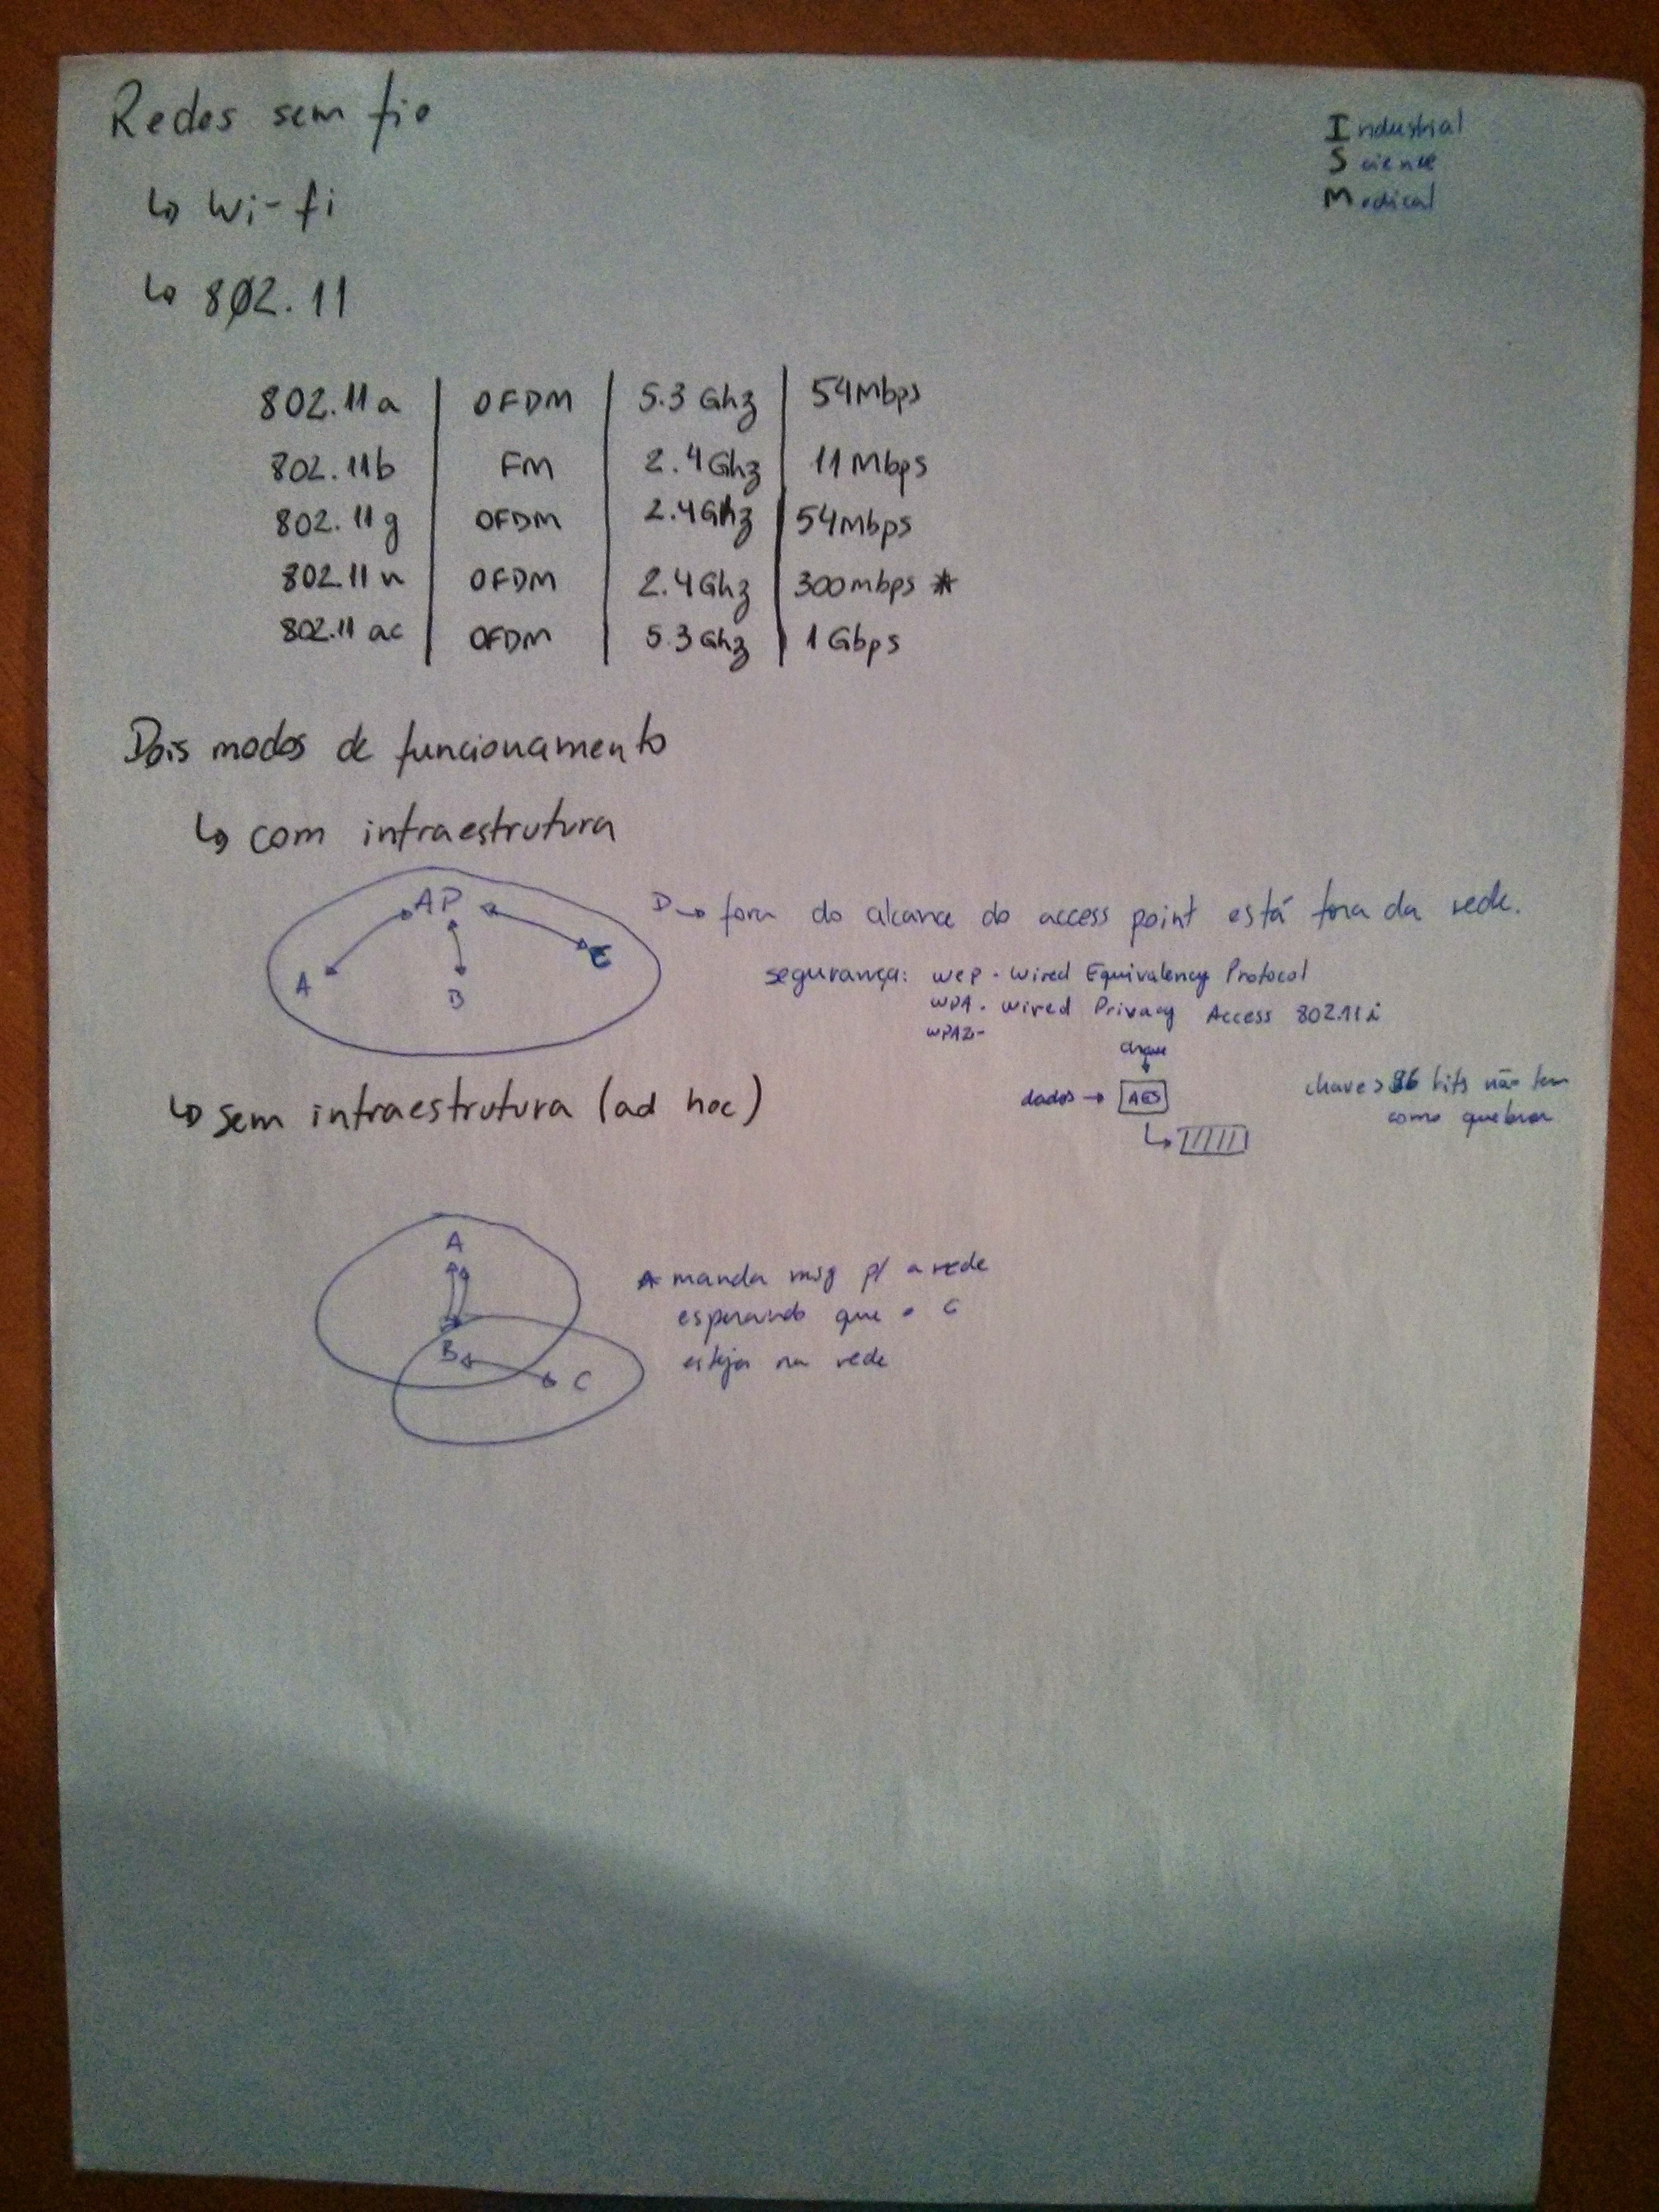 Redes sem fio
Industrial
Science
Medical
↳ Wi-fi
↳ 802.11
802.11a | OFDM | 5.3 Ghz | 54Mbps
802.11b | FM | 2.4Ghz | 11Mbps
802.11g | OFDM | 2.4Ghz | 54Mbps
802.11n | OFDM | 2.4Ghz | 300mbps *
802.11ac | OFDM | 5.3Ghz | 1Gbps
Dois modos de funcionamento
↳ com infraestrutura
AP
A
B
D → fora do alcance do access point está fora da rede.
segurança: WEP - Wired Equivalency Protocol
WPA - Wired Privacy Access 802.11i
WPA2-
chave
dados → AES
chave > 86 bits não tem
como quebrar
↳ sem infraestrutura (ad hoc)
A
B
C
A manda msg p/ a rede
esperando que o C
esteja na rede